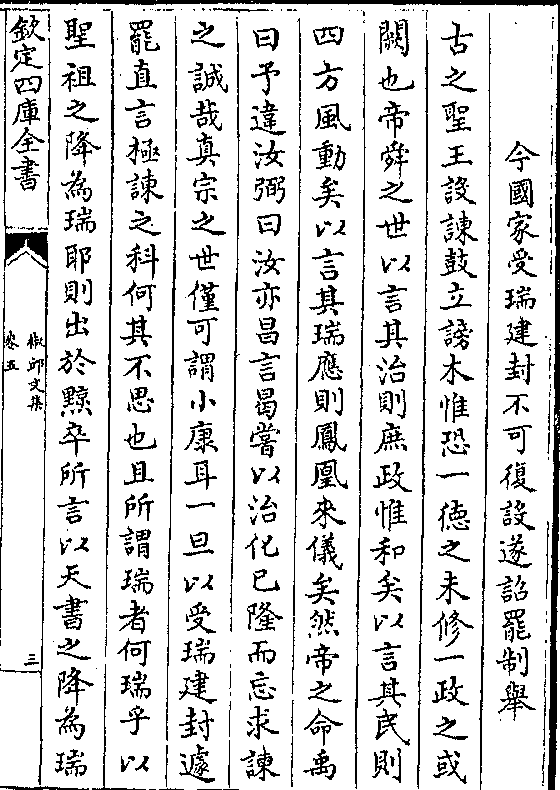 今國家受瑞建封不可復設遂詔罷制舉
古之聖王設諫鼓立謗木惟恐一徳之未修一政之或
闕也帝舜之世以言其治則庶政惟和矣以言其民則
四方風動矣以言其瑞應則鳳凰來儀矣然帝之命禹
曰予違汝弼曰汝亦昌言曷嘗以治化已隆而忘求諫
之誠哉真宗之世僅可謂小康耳一旦以受瑞建封遽
罷直言極諫之科何其不思也且所謂瑞者何瑞乎以
聖祖之降為瑞耶則出於黥卒所言以天書之降為瑞
欽定四庫全書
椒邱文集
卷五
三